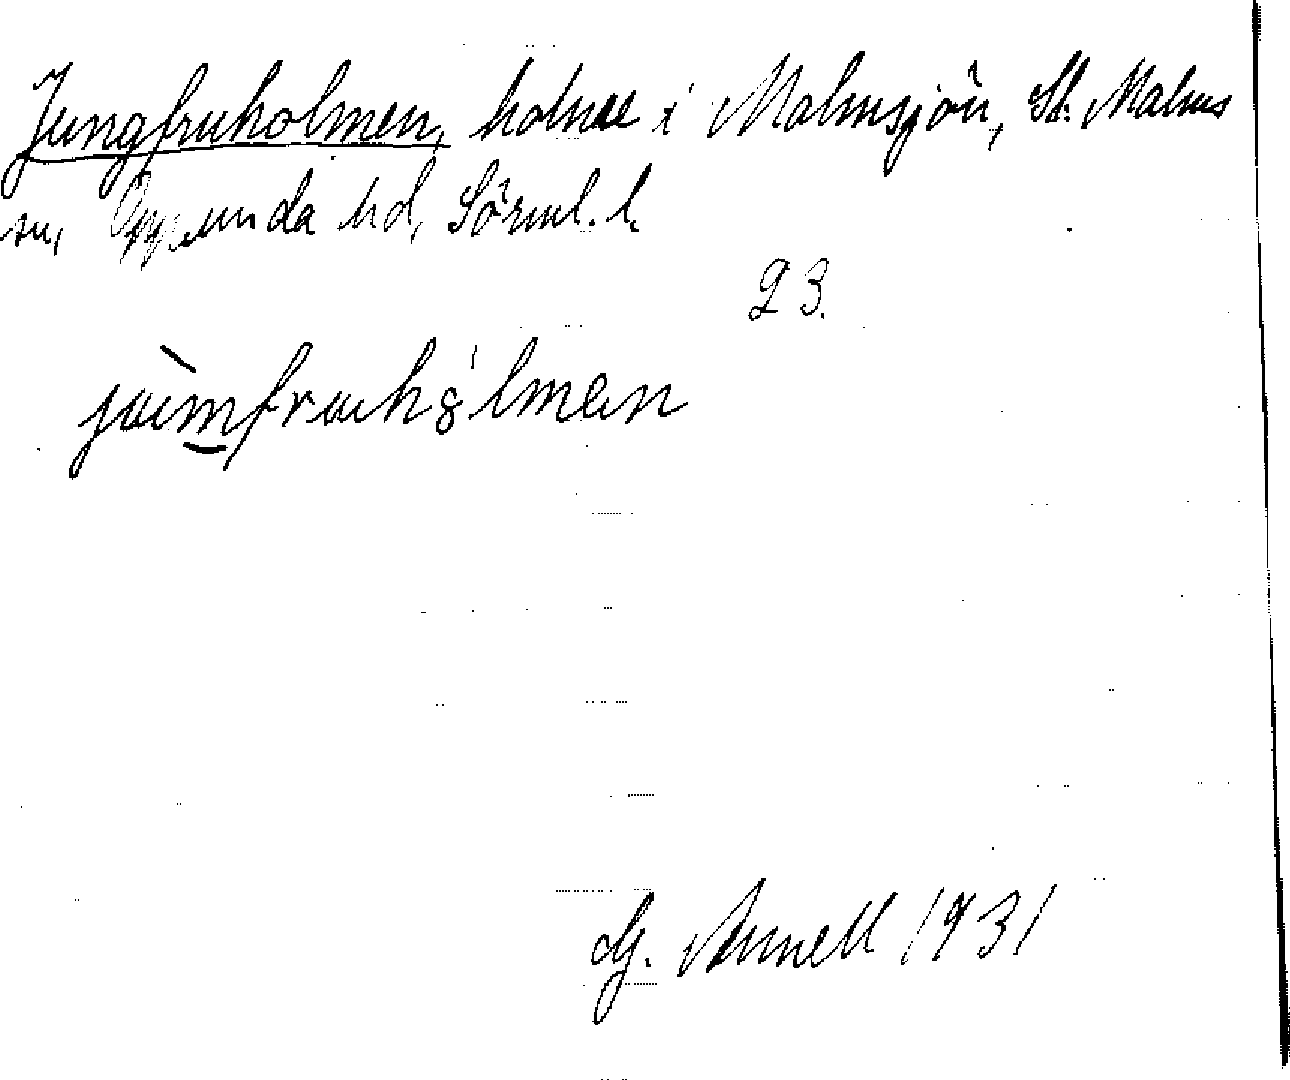 Jungfruholmen, holme i Malmsjön, St. Malms
sn, Oppunda hd, Sörml. l.
23.
jùmfruhʚ́lmen
G. Arnell 1931